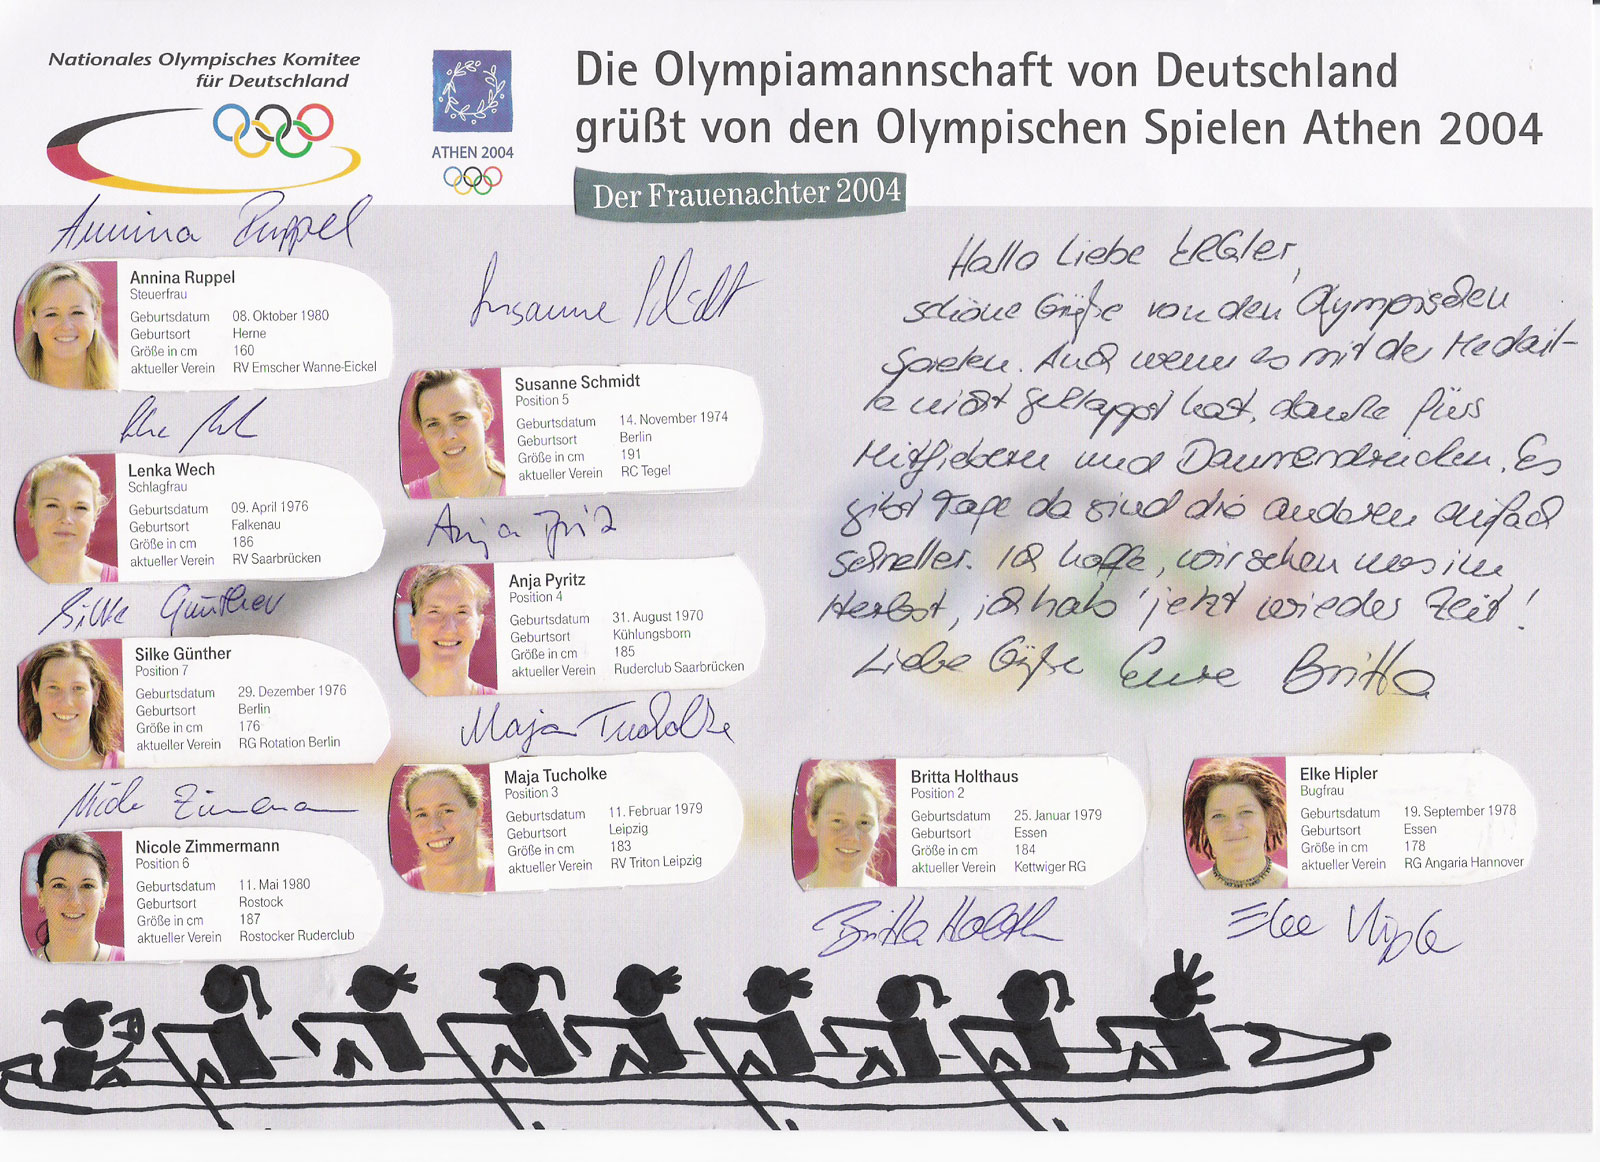 Nationales Olympisches Komitee
für Deutschland
ATHEN 2004
Die Olympiamannschaft von Deutschland
grüßt von den Olympischen Spielen Athen 2004
Der Frauenachter 2004
Annina Ruppel
Annina Ruppel
Steuerfrau
Geburtsdatum 08. Oktober 1980
Geburtsort Herne
Größe in cm 160
aktueller Verein RV Emscher Wanne-Eickel
Lenka Wech
Schlagfrau
Geburtsdatum 09. April 1976
Geburtsort Falkenau
Größe in cm 186
aktueller Verein RV Saarbrücken
Silke Günther
Silke Günther
Position 7
Geburtsdatum 29. Dezember 1976
Geburtsort Berlin
Größe in cm 176
aktueller Verein RG Rotation Berlin
Nicole Zimmermann
Position 6
Geburtsdatum 11. Mai 1980
Geburtsort Rostock
Größe in cm 187
aktueller Verein Rostocker Ruderclub
Susanne Schmidt
Susanne Schmidt
Position 5
Geburtsdatum 14. November 1974
Geburtsort Berlin
Größe in cm 191
aktueller Verein RC Tegel
Anja
Anja Pyritz
Position 4
Geburtsdatum 31. August 1970
Geburtsort Kühlungsborn
Größe in cm 185
aktueller Verein Ruderclub Saarbrücken
Maja Tucholke
Maja Tucholke
Position 3
Geburtsdatum 11. Februar 1979
Geburtsort Leipzig
Größe in cm 183
aktueller Verein RV Triton Leipzig
Hallo Liebe ERGler,
schöne Grüße von den Olympischen
Spielen. Auch wenn es mit der Medail-
le nicht geklappt hat, danke fürs
Mitfiebern und Daumendrücken. Es
gibt Tage da sind die anderen einfach
schneller. Ich hoffe, wir sehen uns im
Herbst, ich hab' jetzt wieder Zeit!
Liebe Grüße Eure Britta
Britta Holthaus
Position 2
Geburtsdatum 25. Januar 1979
Geburtsort Essen
Größe in cm 184
aktueller Verein Kettwiger RG
Britta Holth
Elke Hipler
Bugfrau
Geburtsdatum 19. September 1978
Geburtsort Essen
Größe in cm 178
aktueller Verein RG Angaria Hannover
Elke Hipler